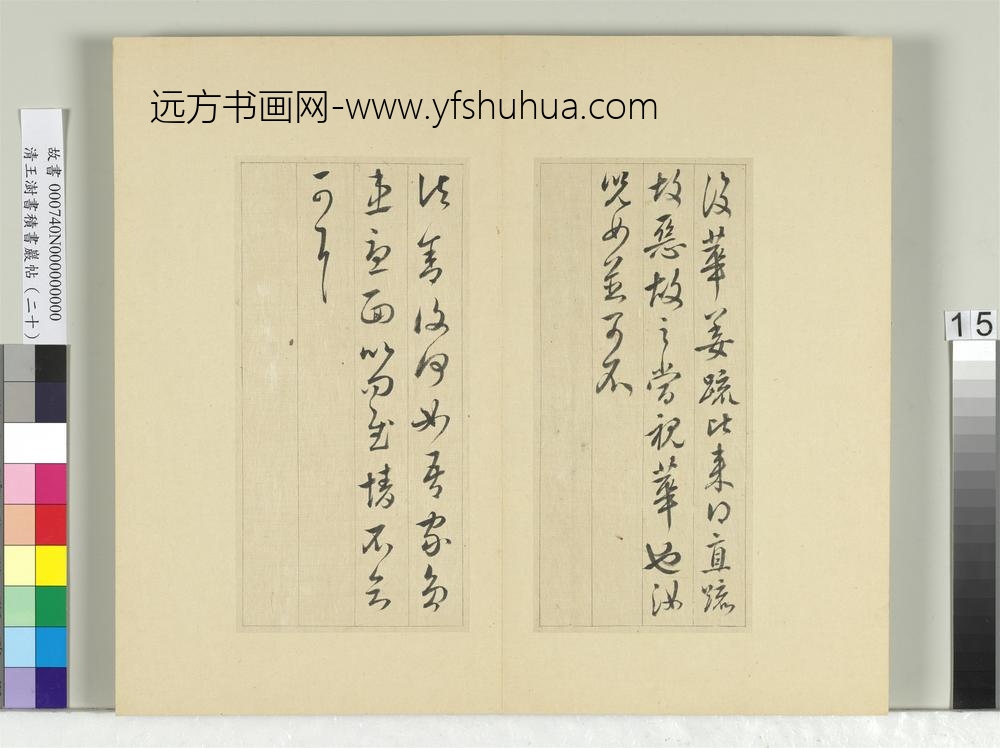 远方书画网-www.yfshuhua.com
故書 000740N000000000
清王澍書積書巖帖（二十）
15
華姜疏比來日宜疏
故惡故之當視華也汝
兒女並可不
復何如吾家
面以 情不
可